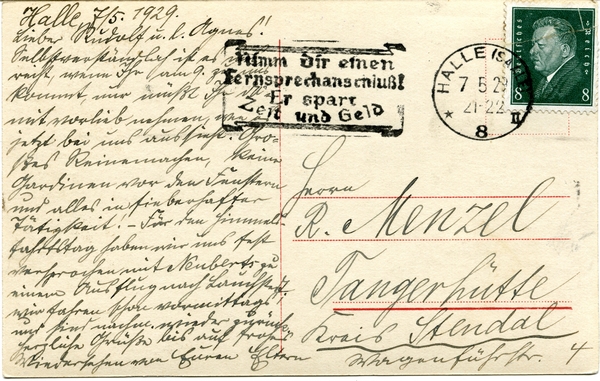 Halle, 7/5. 1929.
Lieber Rudolf u. l. Agnes!
Selbstverständlich ist es uns
recht, wenn Ihr am 9. zu uns
kommt, nur müßt Ihr
mit vorlieb nehmen, wie
jetzt bei uns aussieht. Gro-
ßes Reinemachen, keine
Gardinen vor den Fenstern
und alles in fieberhafter
Tätigkeit! – Für den Himmel-
fahrtstag haben wir uns fest
versprochen mit zu
einem Ausflug nach
wir fahren schon vormittags
und sind nachm. wieder zurück.
Herzliche Grüße bis auf frohes
Wiedersehen von Euren Eltern
Nimm Dir einen
Fernsprechanschluß!
Er spart
Zeit und Geld
HALLE (SAALE)
7 5 29
21-22
* 8 II
DEUTSCHES REICH
8 8
Herrn
R. Menzel
Tangerhütte
Kreis Stendal
Wagenführstr. 4